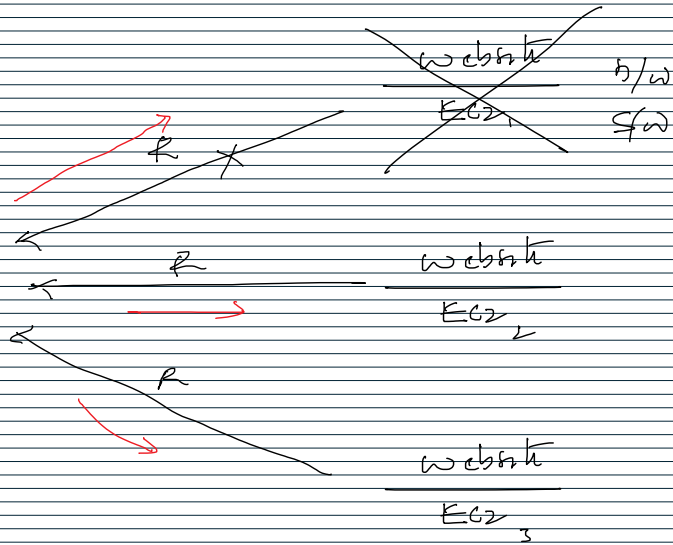 website
H/W
EC2 1
S/W
R
R
website
EC2 2
R
website
EC2 3